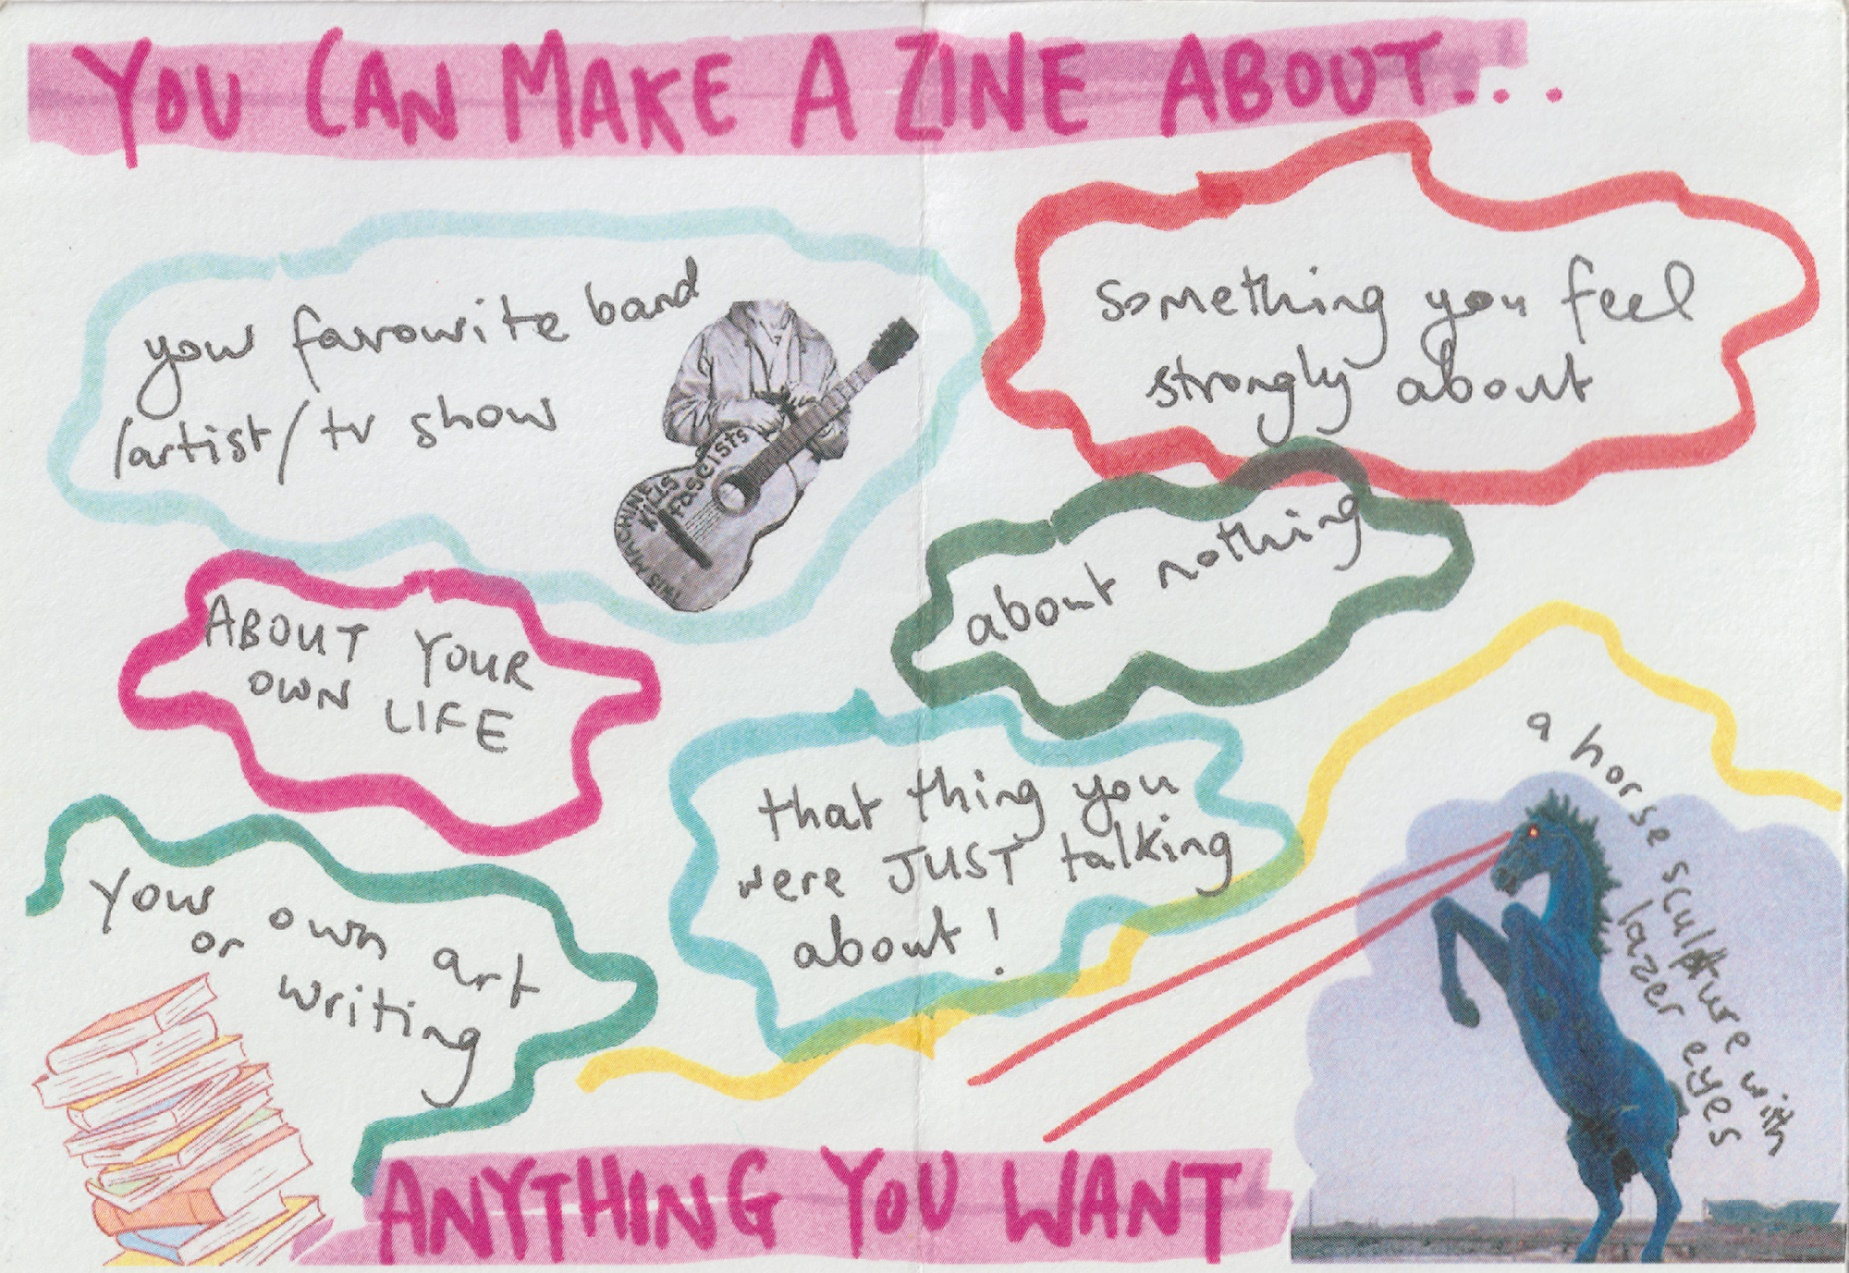 YOU CAN MAKE A ZINE ABOUT...
your favourite band
/artist/tv show
THIS MACHINE
KILLS
fascists
something you feel
strongly about
about nothing
ABOUT YOUR
OWN LIFE
that thing you
were JUST talking
about!
a horse sculpture with
lazer eyes
your own art
or writing
ANYTHING YOU WANT